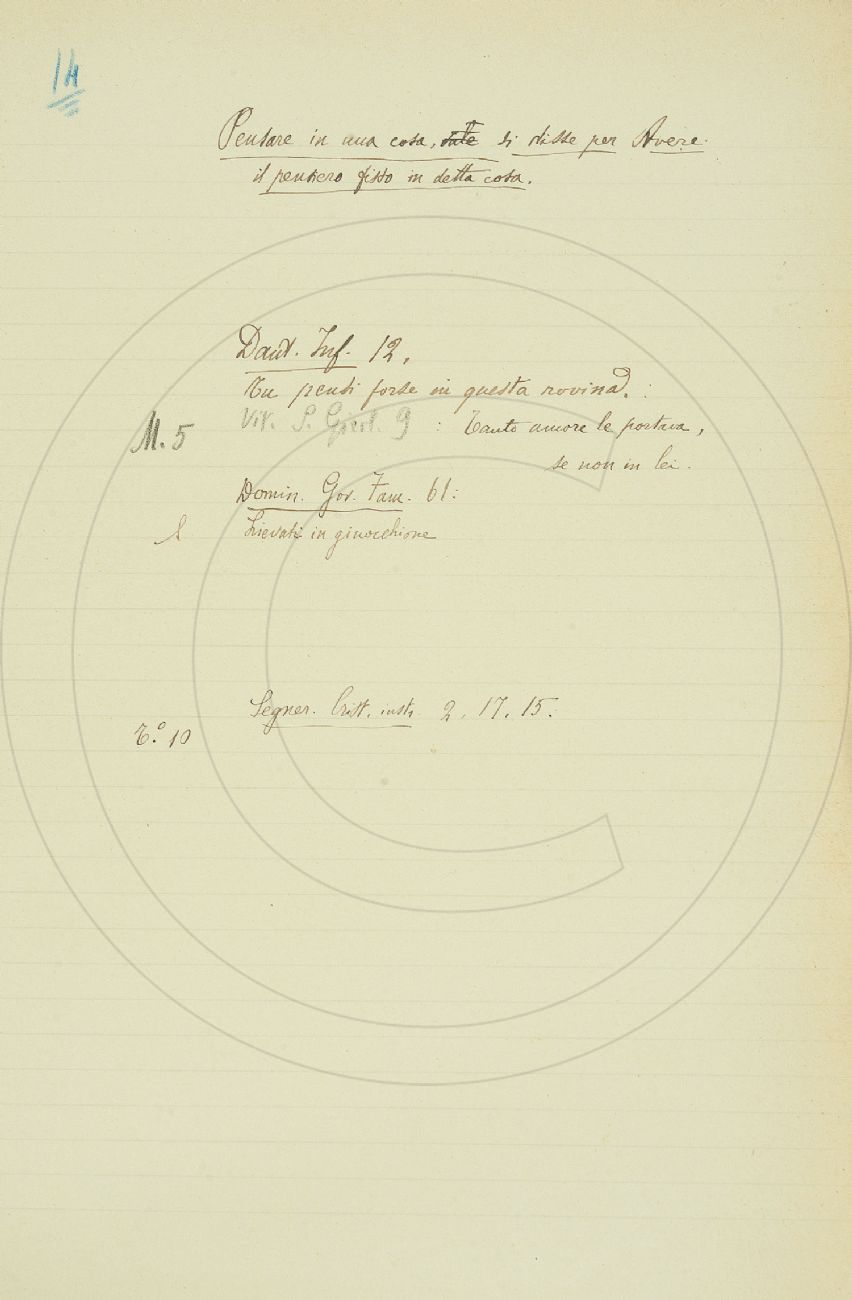 14
Pensare in una cosa, vale si disse per Avere
il pensiero fisso in detta cosa.
Dant. Inf. 12.
Tu pensi forse in questa rovina.
Vit. S. Girol. 9 : Tanto amore le portava,
M. 5
se non in lei.
Domin. Gov. Fam. 61:
in ginocchione
Segner. Crist. instr. 2. 17. 15.
T.º 10